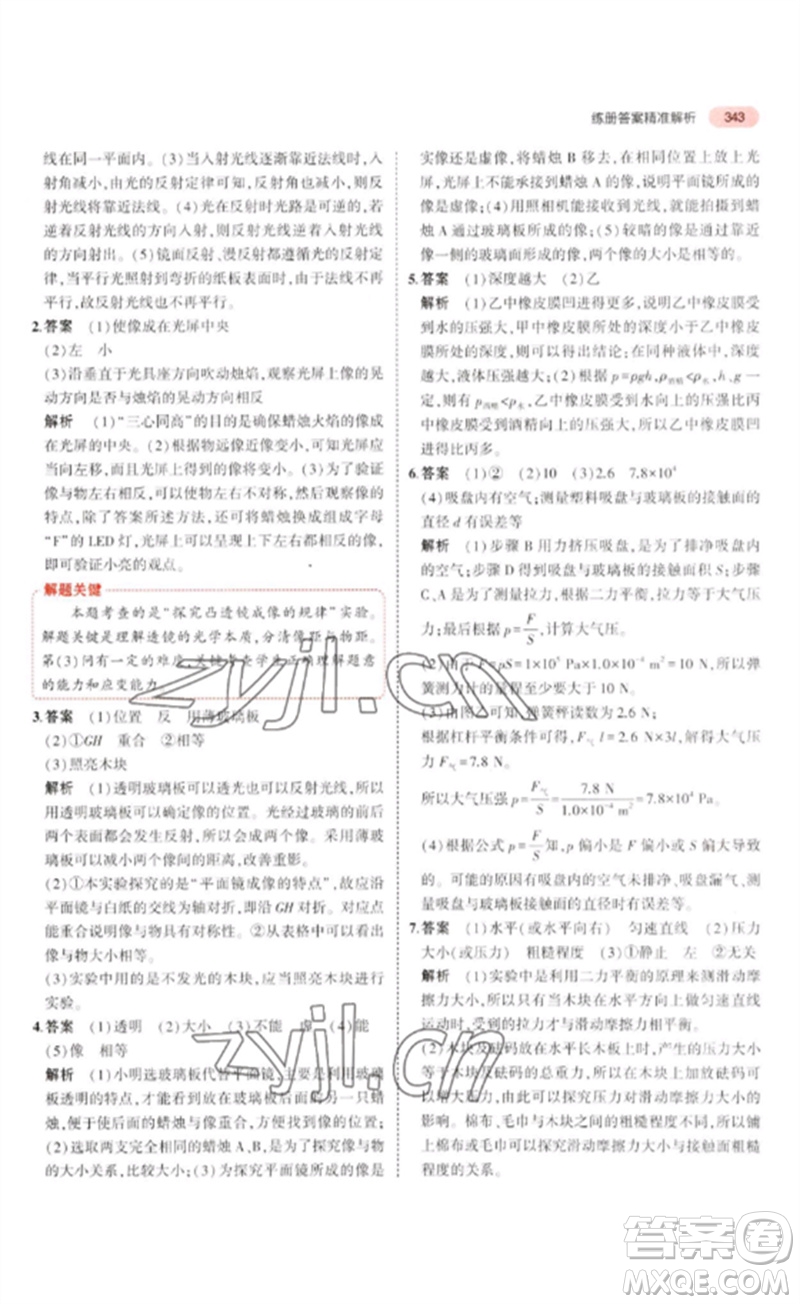 练册答案精准解析 343
线在同一平面内。(3)当入射光线逐渐靠近法线时,入
射角减小,由光的反射定律可知,反射角也减小,即反
射光线将靠近法线。(4)光在反射时光路是可逆的,若
逆着反射光线的方向入射,则反射光线将逆着入射光
的方向射出。(5)镜面反射、漫反射都遵循光的反射定
律,当平行光照射到弯折的纸板表面时,由于法线不再
平行,故反射光线不再平行。
2.答案 (1)使像成在光屏中央
(2)左 小
(3)沿垂直于光具座方向吹动烛焰,观察光屏上像的晃
动方向是否与烛焰的晃动方向相反
解析 (1)“三心同高”的目的是确保蜡烛火焰的像成
在光屏的中央。(2)根据物远像近像变小,可知光屏应
当向左移动,且光屏上得到的像将变小。(3)为了验证
像与物左右相反,可利用烛焰左右不对称,而像倒立的
特点,除了答案所述方法,还可将蜡烛换成组成字母
“F”的LED灯,光屏上将出现上下左右都相反的像,
即可验证小亮的观点。
解题关键
本题考查的是“探究凸透镜成像的规律”实验。
解题关键是理解透镜的光学本质,分清像距与物距。
第(3)问有一定的难度,关键考查学生正确理解题意
的能力和应变能力。
3.答案 (1)位置 反 用薄玻璃板
(2)①GH 重合 ②相等
(3)照亮木块
解析 (1)透明玻璃板可以透光也可以反射光线,所以
用透明玻璃板可以确定像的位置。光经过玻璃的前后
两个表面都会发生反射,所以会成两个像。采用薄玻
璃板可以减小两个像间的距离,改善重影。
(2)①本实验探究的是“平面镜成像的特点”,故应沿
平面镜与白纸的交线为轴对折,即沿GH对折。对应点
能重合说明像与物关于镜面对称。②从表格中可以看
出像与物大小相等。
(3)实验中用的是不发光的木块,应当照亮木块进行
实验。
4.答案 (1)透明 (2)大小 (3)不能 虚 (4)能
(5)像 相等
解析 (1)小明选玻璃板代替平面镜,主要是利用玻璃
板透明的特点,才能在玻璃板后放置另一只
烛,便于后面的蜡烛与像重合,方便找到像的位置;
(2)选取两支完全相同的蜡烛A、B,是为了探究像与物
的大小关系,比较大小;(3)为了探究平面镜所成的像是
实像还是虚像,将蜡烛B移去,在其位置上放上光
屏,光屏上不能承接到蜡烛A的像,说明平面镜所成的
像是虚像;(4)用照相机能接收到光线,就能拍摄到蜡
烛A通过玻璃板所成的像。(5)较暗的像是由靠近
像一侧的玻璃面形成的像,两个像的大小是相等的。
5.答案 (1)深度越大 (2)乙
解析 (1)乙中橡皮膜凹进得更多,说明乙中橡皮膜受
到水的压强大,甲中橡皮膜所处的深度小于乙中橡皮
膜所处的深度,即可得出结论:在同种液体中,深度
越大,液体压强越大;(2)根据p=ρgh,ρ酒精<ρ水,h、g一
定,有p酒精<p水,乙中橡皮膜受到水向上的压强比丙
中橡皮膜受到的酒精向上的压强大,故乙中橡皮膜凹
进得比丙多。
6.答案 (1)② (2)10 (3)2.6 7.8×10⁴
(4)吸盘内有空气;测量塑料吸盘与玻璃板的接触面的
直径d有误差等
解析 (1)步骤B用力挤压吸盘,是为了排净吸盘内
的空气;步骤D是为了测量吸盘与玻璃板的接触面积;步骤
C、A是为了测量拉力,根据二力平衡,拉力等于大气压
力;最后根据p=F/S,计算大气压。
(2)由F=pS=1×10⁵ Pa×1.0×10⁻⁴ m²=10 N,所以弹
簧测力计的量程至少为10 N。
(3)由图乙可知,弹簧秤读数为2.6 N;
根据杠杆平衡条件可得,F气×l=2.6 N×3l,解得大气压
力F气=7.8 N。
所以大气压强p=F气/S=7.8 N/1.0×10⁻⁴ m²=7.8×10⁴ Pa。
(4)根据公式p=F/S知,p偏小是F偏小或S偏大导致
的。可能的原因有吸盘内的空气未排净、吸盘漏气、测
量吸盘与玻璃板接触面的直径时有误差等。
7.答案 (1)水平(或水平向右) 匀速直线 (2)压力
大小(或压力) 粗糙程度 (3)①静止 左 ②无关
解析 (1)实验是利用二力平衡的原理来测滑动摩
擦力大小的,故应沿水平方向拉动木块做匀速直线
运动时,受到的拉力才与滑动摩擦力相平衡。
(2)木块及砝码放在长木板上时,产生的压力大小
等于木块及砝码的总重力,增加砝码可以
探究滑动摩擦力大小受压力大小的
影响。棉布、毛巾与木块之间的粗糙程度不同,所以铺
上棉布或毛巾可以探究滑动摩擦力大小与接触面粗糙
程度的关系。
zyjl.cn
zyjl.cn
答案圈
MXQE.COM